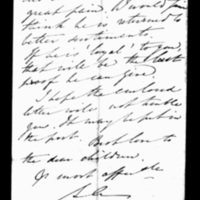 great pain. I would fain
think he is returned to
better sentiments.
If he is 'loyal' to you,
that will be the best
proof he can give
I hope the enclosed
letter will not trouble
you. It may be put in
the post. Best love to
the dear children.
Yr most affecte